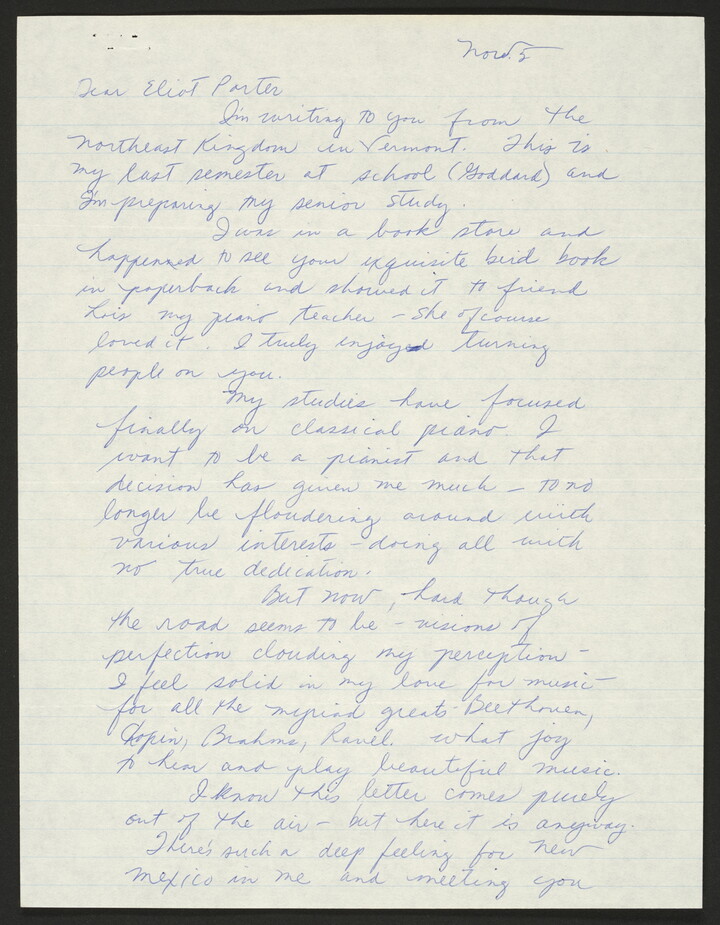 Nov. 5
Dear Eliot Porter
I'm writing to you from the
Northeast Kingdom in Vermont. This is
my last semester at school (Goddard) and
I'm preparing my senior study.
I was in a book store and
happenned to see your exquisite bird book
in paperback and showed it to friend
Lois my piano teacher – she of course
loved it. I truly enjoyed turning
people on you.
My studies have focused
finally on classical piano. I
want to be a pianist and that
decision has given me much – to no
longer be floudering around with
various interests – doing all with
no true dedication.
But now, hard though
the road seems to be – visions of
perfection clouding my perception –
I feel solid in my love for music –
for all the myriad greats – Beethoven,
Chopin, Brahms, Ravel. What joy
to hear and play beautiful music.
I know this letter comes purely
out of the air – but here it is anyway.
There's such a deep feeling for New
Mexico in me and meeting you